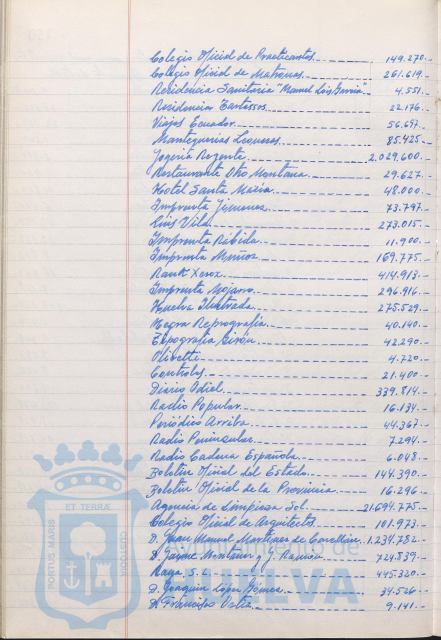 Colegio Oficial de Practicantes 149.270.-
Colegio Oficial de Matronas 261.619.-
Residencia Sanitaria "Manuel Lois García" 4.551.-
Residencia Tartessos 22.176.-
Viajes Ecuador 56.657.-
Mantequerías Leoneses 85.425.-
Joyería Regente 2.029.600.-
Restaurante Otto Montana 29.627.-
Hotel Santa María 48.000.-
Imprenta Jimenez 73.797.-
Luis Vila 273.015.-
Imprenta Rábida 11.900.-
Imprenta Muñoz 169.775.-
Rank Xerox 414.913.-
Imprenta Mojarro 296.916.-
Huelva Ilustrada 275.529.-
Negra Reprografía 40.140.-
Tipografía Girón 42.290.-
Olivetti 4.720.-
Controles 21.400.-
Diario Odiel 339.814.-
Radio Popular 16.134.-
Periódico Arriba 44.367.-
Radio Peninsular 7.294.-
Radio Cadena Española 6.048.-
Boletín Oficial del Estado 144.390.-
Boletín Oficial de la Provincia 16.296.-
Agencia de Limpieza Sol 21.694.775.-
Colegio Oficial de Arquitectos 101.973.-
D. Juan Manuel Martínez de 1.234.752.-
D. Jaime Montaner y J. Ramón 724.839.-
S.L. 445.320.-
D. Joaquín López Gómez 34.526.-
D. Francisco 9.141.-
ET TERRÆ
PORTUS MARIS
CUSTODIA
HUELVA